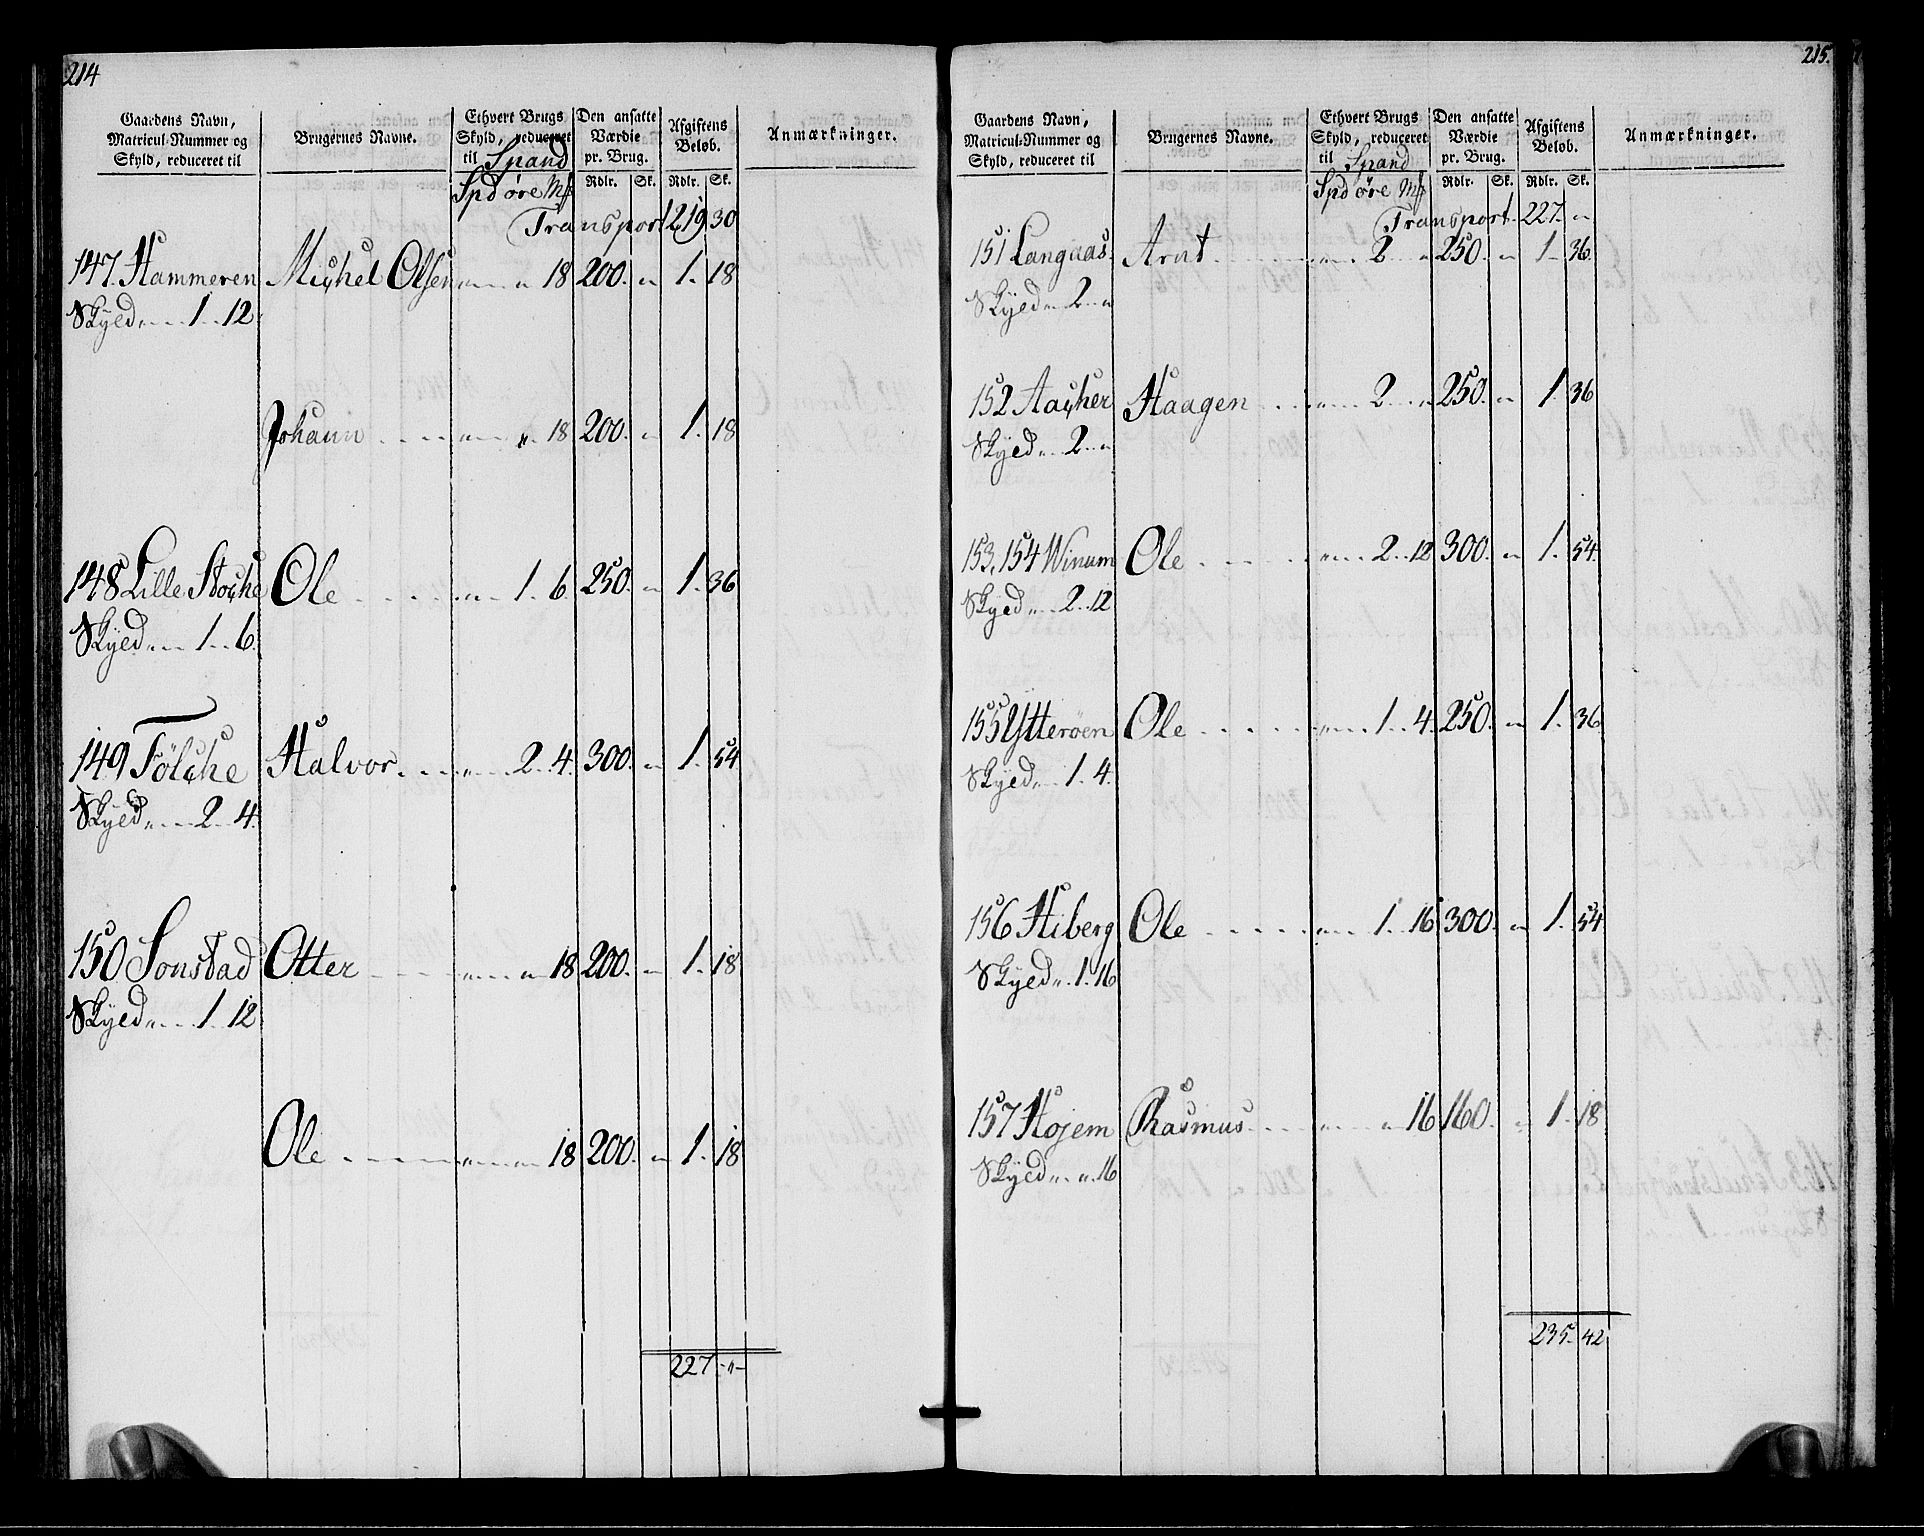 214
Gaardens Navn, Matricul-Nummer og Skyld, reduceret til
Brugernes Navne.
Ethvert Brugs Skyld, reduceret til Spand
Spd öre Mk
Den ansatte Værdie pr. Brug.
Rdlr. Sk.
Afgiftens Beløb.
Rdlr. Sk.
Anmærkninger.
Transport 219 30
147. Hammeren Michel Olsen „ 18 200. „ 1. 18
Skyld „ 1. 12.
Johann „ 18 200. „ 1. 18
148 Lille Stocke Ole „ 1. 6. 250. „ 1. 36
Skyld „ 1. 6.
149 Fölche Halvor „ 2. 4. 300. „ 1. 54
Skyld „ 2. 4.
150 Sonstad Otter „ „ 18 200. „ 1. 18
Skyld „ 1. 12
Ole „ „ 18 200. „ 1. 18
227. „
215.
Gaardens Navn, Matricul-Nummer og Skyld, reduceret til
Brugernes Navne.
Ethvert Brugs Skyld, reduceret til Spand
Spd öre Mk
Den ansatte Værdie pr. Brug.
Rdlr. Sk.
Afgiftens Beløb.
Rdlr. Sk.
Anmærkninger.
Transport 227. „
151 Langaas. Arnt „ 2 „ 250. „ 1. 36.
Skyld „ 2 „
152 Aacher Haagen „ 2 „ 250. „ 1. 36
Skyld „ 2 „
153, 154 Winum Ole „ 2. 12 300. „ 1. 54.
Skyld „ 2. 12
155 Ytterøen Ole „ 1. 4. 250. „ 1. 36
Skyld „ 1. 4.
156 Hiberg Ole „ 1. 16 300. „ 1. 54
Skyld „ 1. 16
157 Hojem Rasmus „ „ 16 160. „ 1. 18
Skyld „ „ 16
235. 42